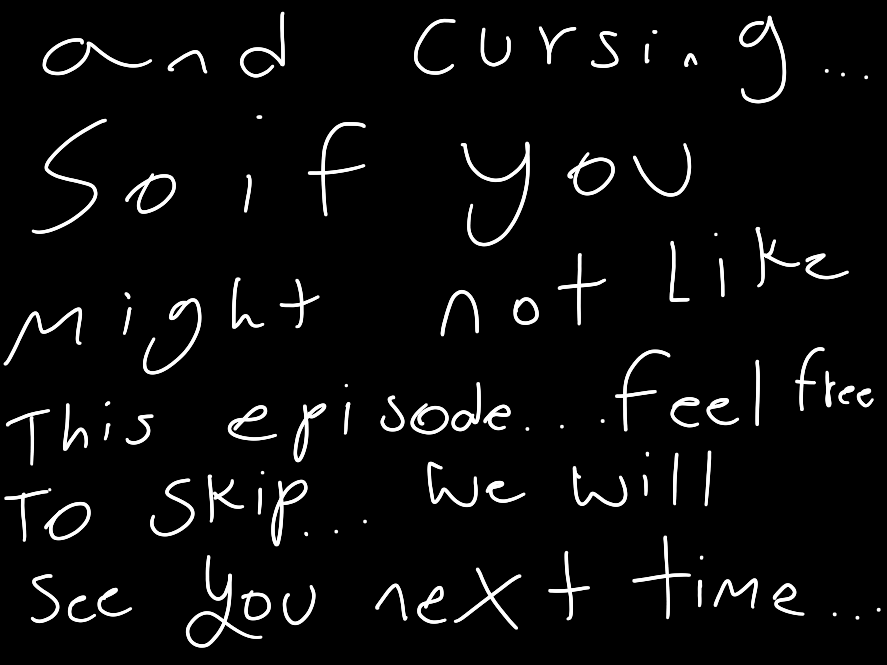 and cursing...
So if you
might not Like
This episode... feel free
To skip... we will
see you next time...